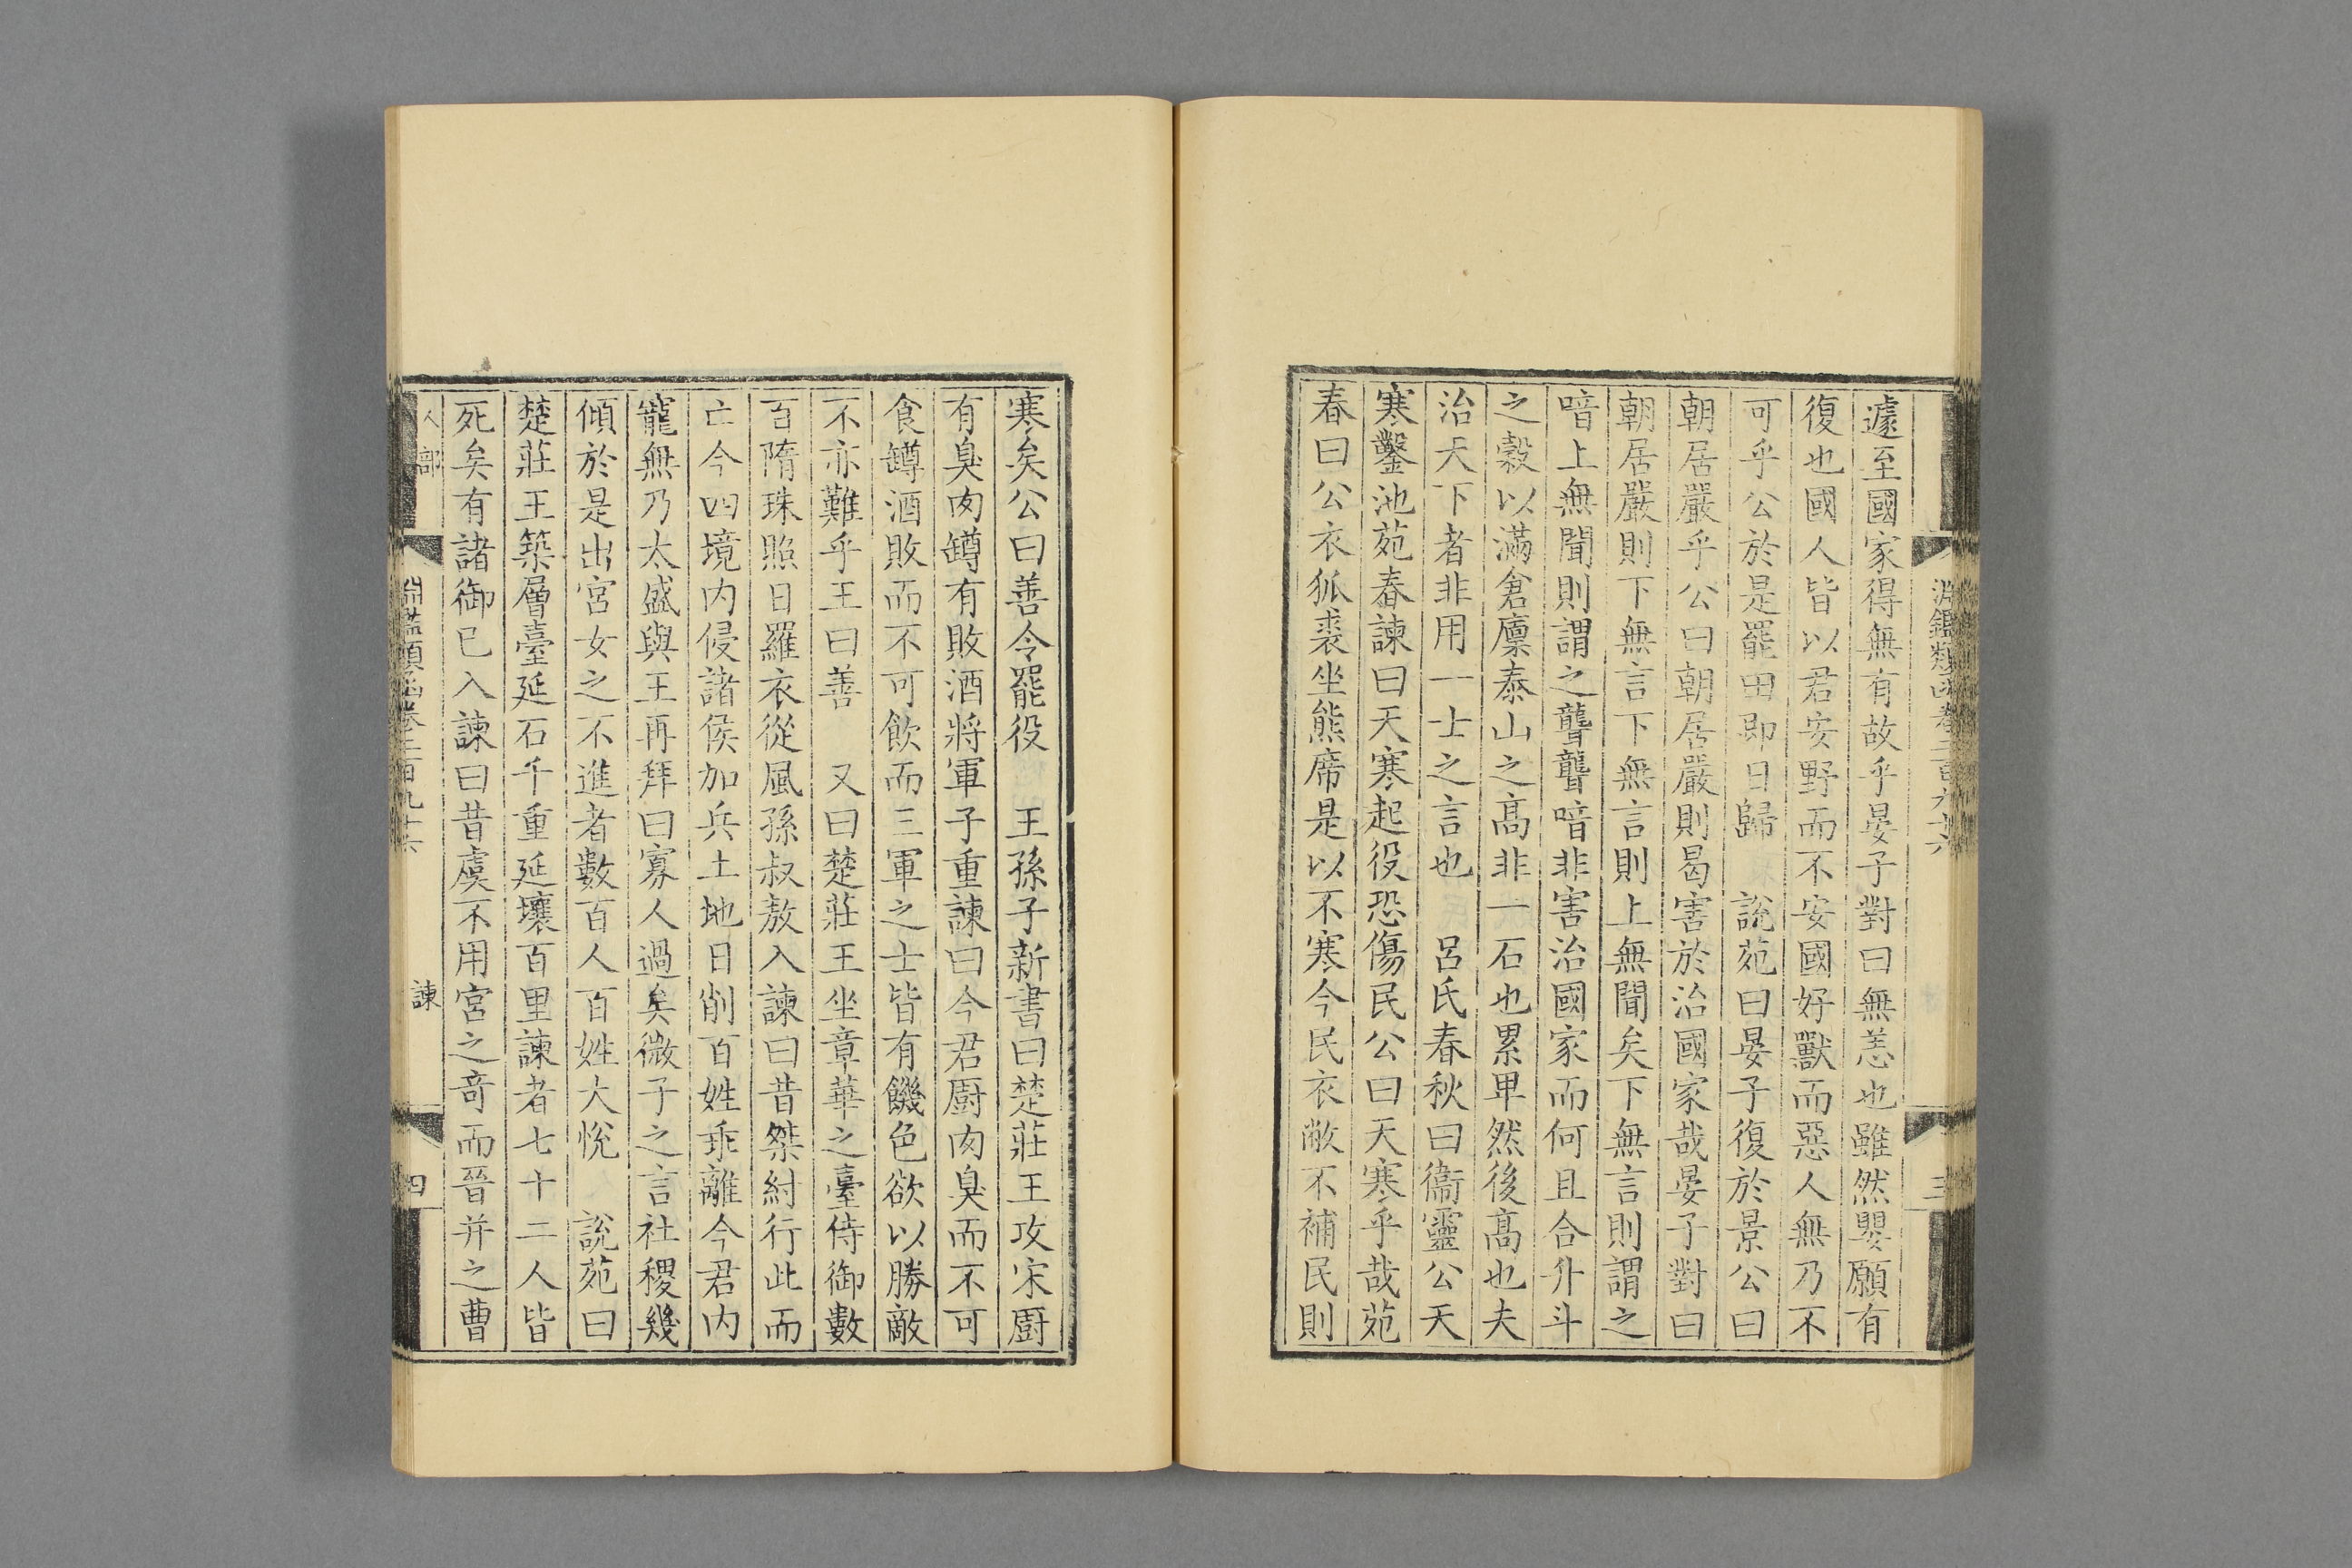 淵鑑類函卷二百九十六
三
遽至國家得無有故乎晏子對曰無恙也雖然嬰願有
復也國人皆以君安野而不安國好獸而惡人無乃不
可乎公於是罷田即日歸　說苑曰晏子復於景公曰
朝居嚴乎公曰朝居嚴則曷害於治國家哉晏子對曰
朝居嚴則下無言下無言則上無聞矣下無言則謂之
喑上無聞則謂之聾聾喑非害治國家而何且合升斗
之穀以滿倉廩泰山之高非一石也累卑然後高也夫
治天下者非用一士之言也　呂氏春秋曰衞靈公天
寒鑿池苑春諫曰天寒起役恐傷民公曰天寒乎哉苑
春曰公衣狐裘坐熊席是以不寒今民衣敝不補民則
寒矣公曰善令罷役　王孫子新書曰楚莊王攻宋厨
有臭肉罇有敗酒將軍子重諫曰今君厨肉臭而不可
食罇酒敗而不可飲而三軍之士皆有饑色欲以勝敵
不亦難乎王曰善　又曰楚莊王坐章華之臺侍御數
百隋珠照日羅衣從風孫叔敖入諫曰昔桀紂行此而
亡今四境內侵諸侯加兵土地日削百姓乖離今君內
寵無乃太盛與王再拜曰寡人過矣微子之言社稷幾
傾於是出宮女之不進者數百人百姓大悅　說苑曰
楚莊王築層臺延石千重延壤百里諫者七十二人皆
死矣有諸御已入諫曰昔虞不用宮之奇而晉并之曹
人部
淵鑑類函卷二百九十六
諫
四